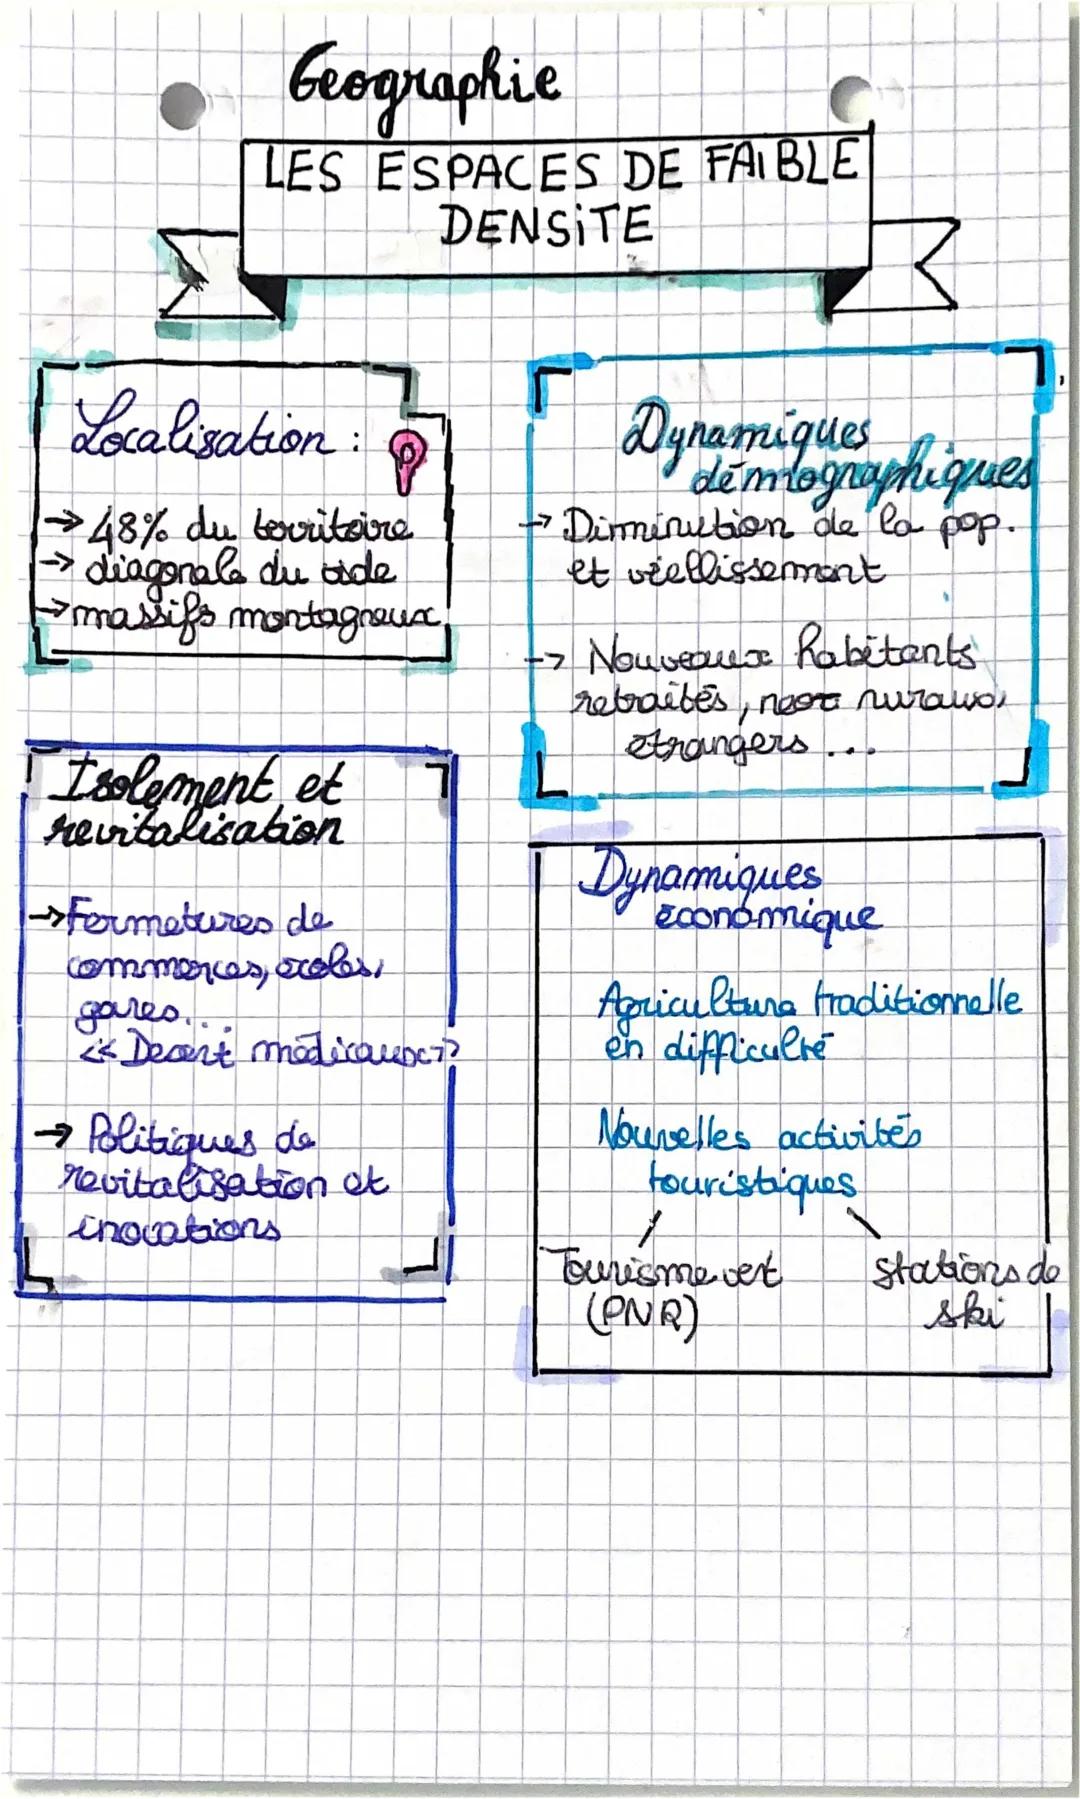 Geographie
LES ESPACES DE FAIBLE
DENSiTE
Localisation :
→ 48% du territoire
→ diagonale du vide
→ massifs montagneux
Dynamiques
démographiques
→ Diminution de la pop.
et viellissement
→ Nouveaux habitants
retraités, ruraux,
etrangers ...
Isolement et
revitalisation
→ Fermetures de
commerces, ecoles,
gares...
<< Desert médicaux >>
→ Politiques de
revitalisation et
inovations
Dynamiques
économique
Agriculture traditionnelle
en difficulté
Nouvelles activités
touristiques
Tourisme vert
(PNR)
stations de
ski